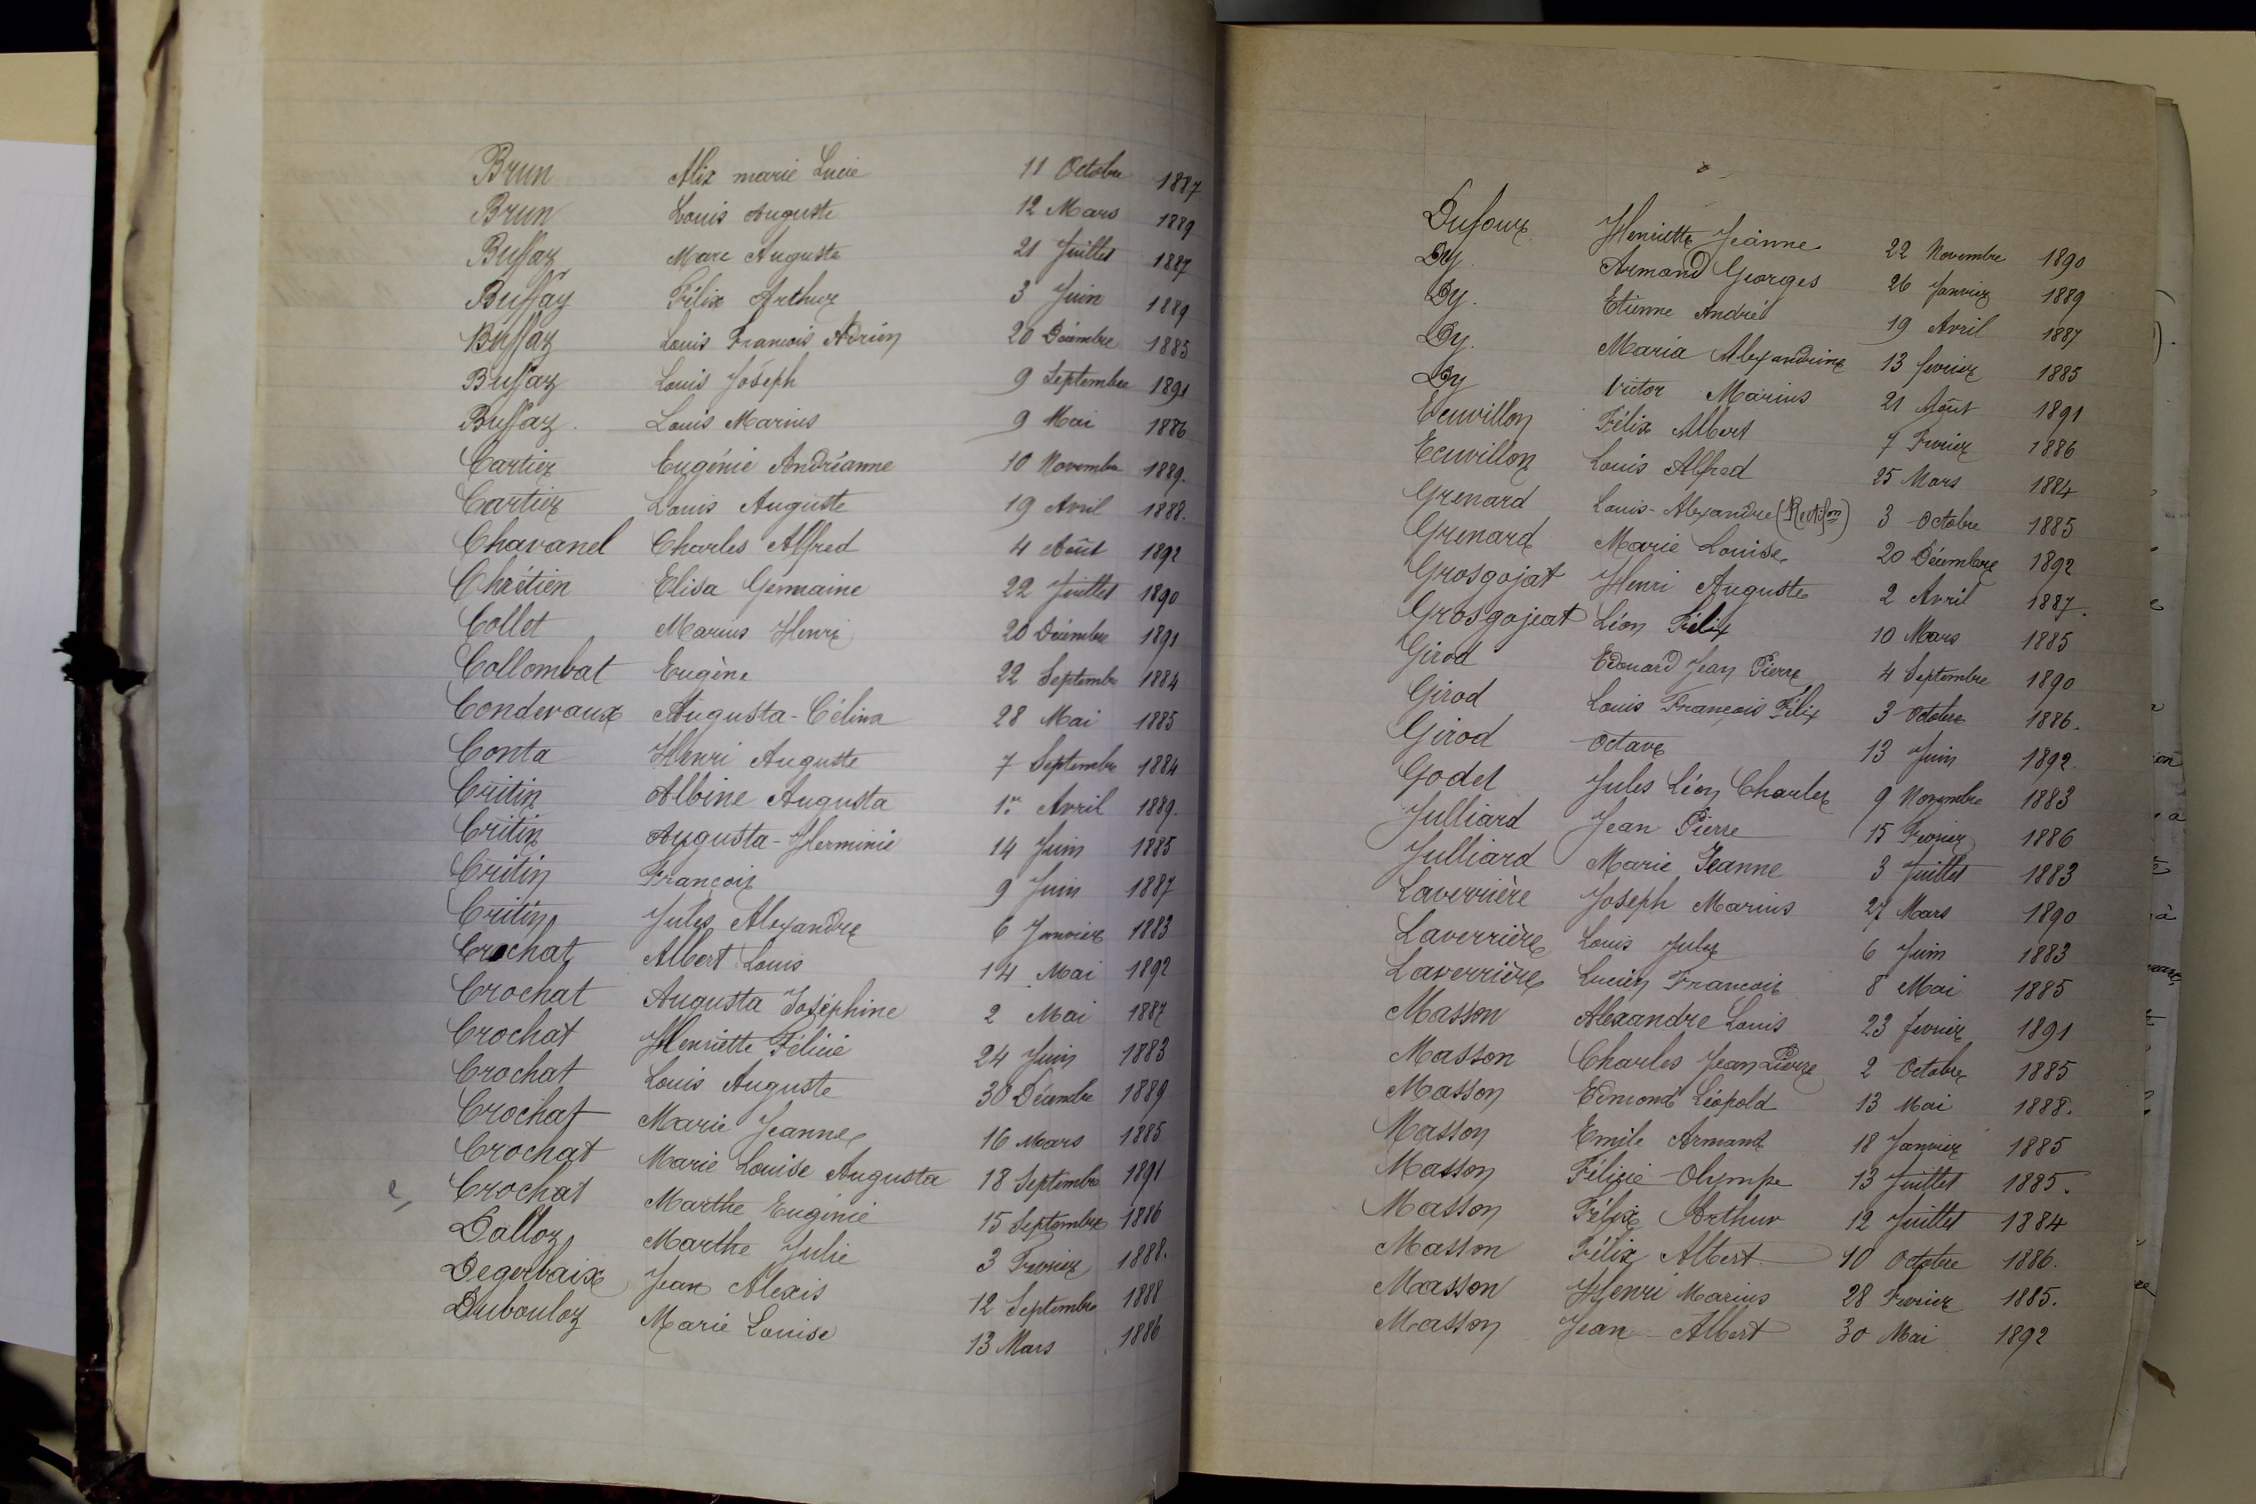 Brun Alix marie Lucie 11 Octobre 1887
Brun Louis Auguste 12 Mars 1889
Buffaz Marc Auguste 21 Juillet 1887
Buffaz Félix Arthur 3 Juin 1889
Buffaz Louis François Adrien 20 Décembre 1885
Buffaz Louis Joseph 9 Septembre 1891
Buffaz Louis Marius 9 Mai 1886
Cartier Eugénie Andréanne 10 Novembre 1889.
Cartier Louis Auguste 19 Avril 1888.
Chavanel Charles Alfred 4 Août 1892
Chrétien Elisa Germaine 22 Juillet 1890
Collet Marius Henri 20 Décembre 1891
Collombat Eugène 22 Septembre 1884
Condevaux Augusta-Célina 28 Mai 1885
Conta Henri Auguste 7 Septembre 1884
Critin Albine Augusta 1er Avril 1889.
Critin Augusta-Herminie 14 Juin 1885
Critin François 9 Juin 1887
Critin Jules Alexandre 6 Janvier 1883
Crochat Albert Louis 14 Mai 1892
Crochat Augusta Joséphine 2 Mai 1887
Crochat Henriette Félicie 24 Juin 1883
Crochat Louis Auguste 30 Décembre 1889
Crochat Marie Jeanne 16 Mars 1885
Crochat Marie Louise Augusta 18 Septembre 1891
Crochat Marthe Eugénie 15 Septembre 1886
Dalloz Marthe Julie 3 Février 1888.
Degerbaix Jean Alexis 12 Septembre 1888
Dubouloz Marie Louise 13 Mars 1886
Dufour Henriette Jeanne 22 Novembre 1890
Dy. Armand Georges 26 Janvier 1889
Dy. Etienne André 19 Avril 1887
Dy. Maria Alexandrine 13 février 1885
Dy Victor Marius 21 Août 1891
Ecuvillon Félix Albert 7 Février 1886
Ecuvillon Louis Alfred 25 Mars 1884
Grenard Louis-Alexandre (Rectifon) 3 Octobre 1885
Grenard Marie Louise 20 Décembre 1892
Grosgojat Henri Auguste 2 Avril 1887.
Grosgojeat Léon Félix 10 Mars 1885
Girod Edouard Jean Pierre 4 Septembre 1890
Girod Louis François Félix 3 Octobre 1886.
Girod Octave 13 Juin 1892.
Godet Jules Léon Charles 9 Novembre 1883
Julliard Jean Pierre 15 Février 1886
Julliard Marie Jeanne 3 Juillet 1883
Laverrière Joseph Marius 27 Mars 1890
Laverrière Louis Jules 6 Juin 1883
Laverrière Lucien François 8 Mai 1885
Masson Alexandre Louis 23 février 1891
Masson Charles Jean Pierre 2 Octobre 1885
Masson Edmond Léopold 13 Mai 1888.
Masson Emile Armand 18 Janvier 1885
Masson Félicie-Olympe 13 Juillet 1885.
Masson Félix Arthur 12 Juillet 1884
Masson Félix Albert 10 Octobre 1886.
Masson Henri Marius 28 Février 1885.
Masson Jean-Albert 30 Mai 1892